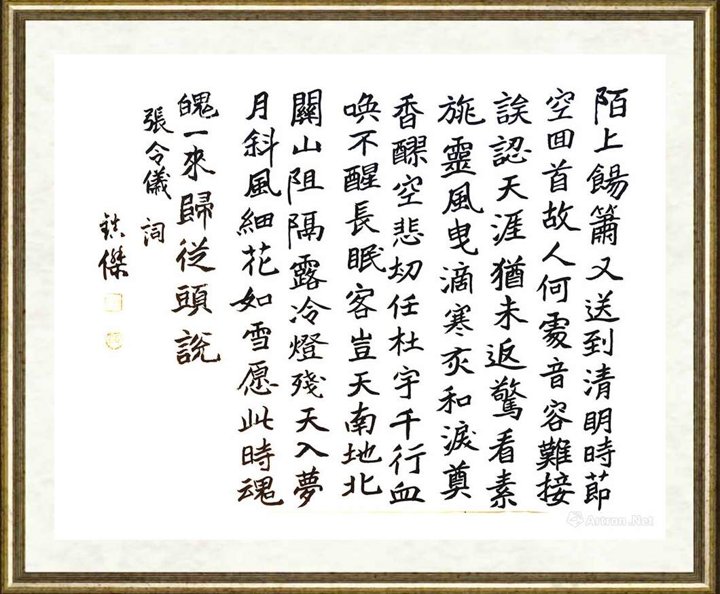 陌上餳簫又送到清明時節
空回首故人何處音容難接
誤認天涯猶未返驚看素
旐靈風曳滴寒炙和淚奠
香醪空悲切任杜宇千行血
喚不醒長眠客豈天南地北
關山阻隔露冷燈殘天入夢
月斜風細花如雪愿此時魂
魄一來歸從頭說
張令儀 詞
傑
Artron.Net